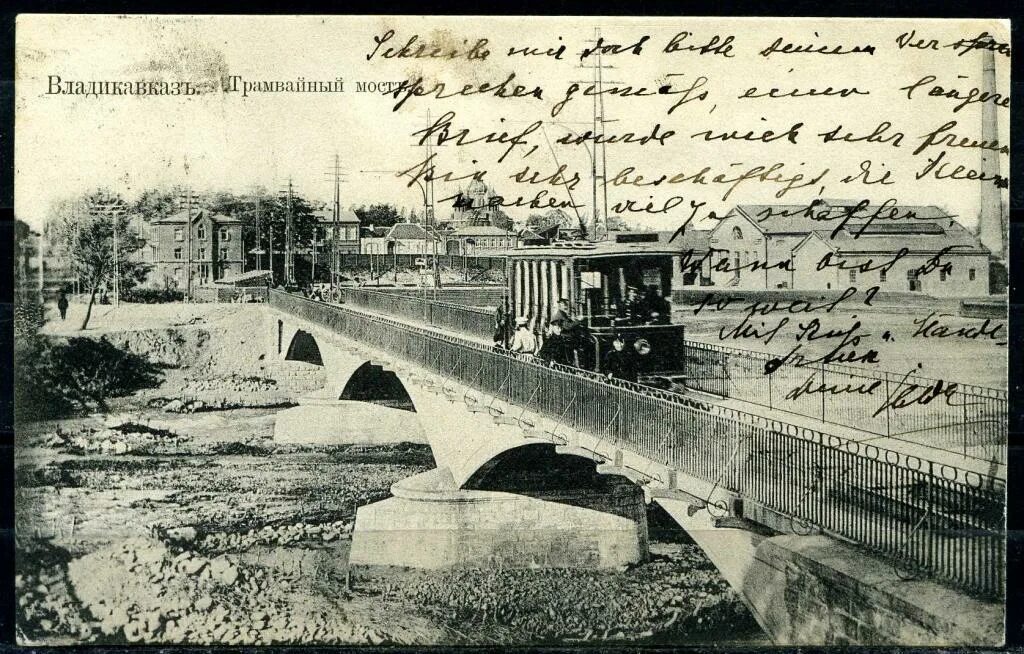 Владикавказъ. Трамвайный мостъ.
Schreibe mir doch bitte deinem Ver
sprechen gemäß, einen längeren
Brief, würde mich sehr freuen
Bin sehr beschäftigt, die Kleinen
machen viel zu schaffen
Wann bist Du
so weit?
Mit Gruß u. Hände-
deine